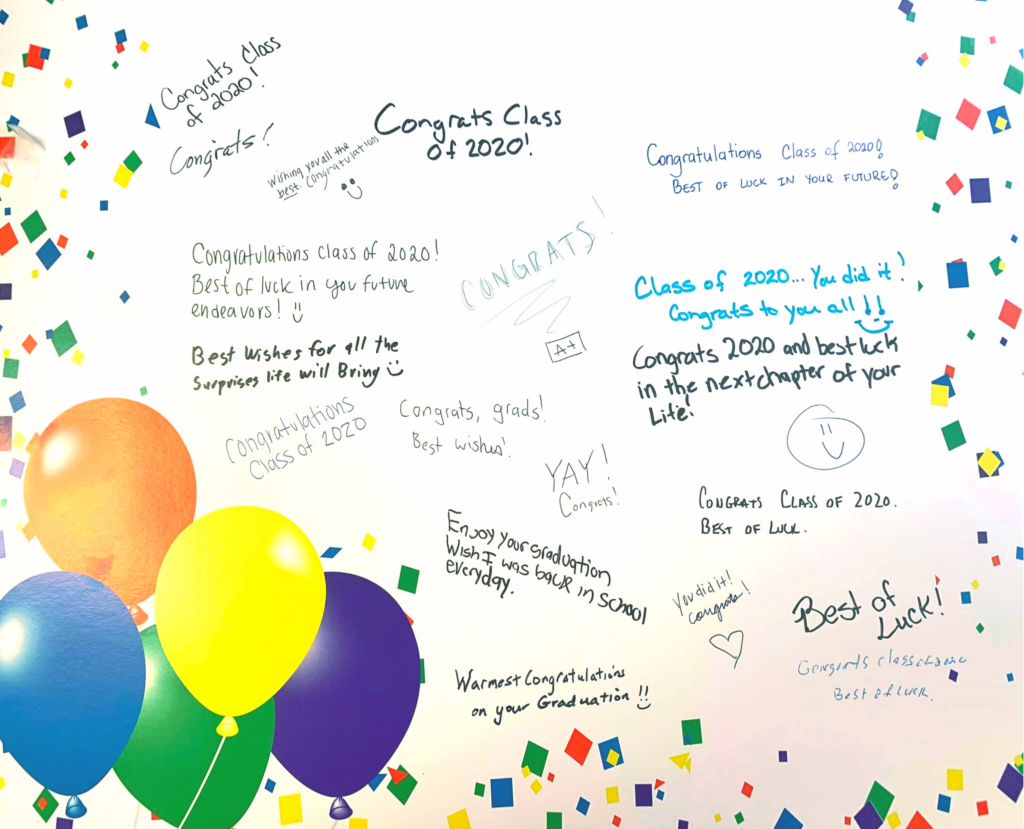 Congrats Class
of 2020!
Congrats!
Wishing you all the
best. Congratulations
Congrats Class
of 2020!
Congratulations Class of 2020!
BEST OF LUCK IN YOUR FUTURE!
Congratulations Class of 2020!
Best of luck in you future
endeavors!
CONGRATS!
A+
Class of 2020... You did it!
Congrats to you all!!
Best Wishes for all the
Surprises life will Bring
Congrats 2020 and best luck
in the next chapter of your
Life!
Congratulations
Class of 2020
Congrats, grads!
Best wishes!
YAY!
Congrats!
CONGRATS CLASS OF 2020.
BEST OF LUCK.
Enjoy your graduation
Wish I was back in School
everyday.
You did it!
congrats!
Best of
Luck!
Congrats class of
Best of luck.
Warmest Congratulations
on your Graduation!!